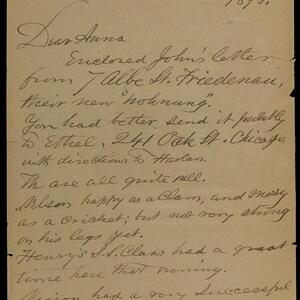 1895.
Dear Anna
Enclosed John's letter
from 7 Albe St. Friedenau,
their new "wohnung".
You had better send it probably
to Ethel, 241 Oak St. Chicago,
with directions to Harlan.
We are all quite well.
Nelson happy as a Clam, and merry
as a cricket; but not very strong
on his legs yet.
Henry's S.S. Class had a great
time here that evening.
had a very Successful